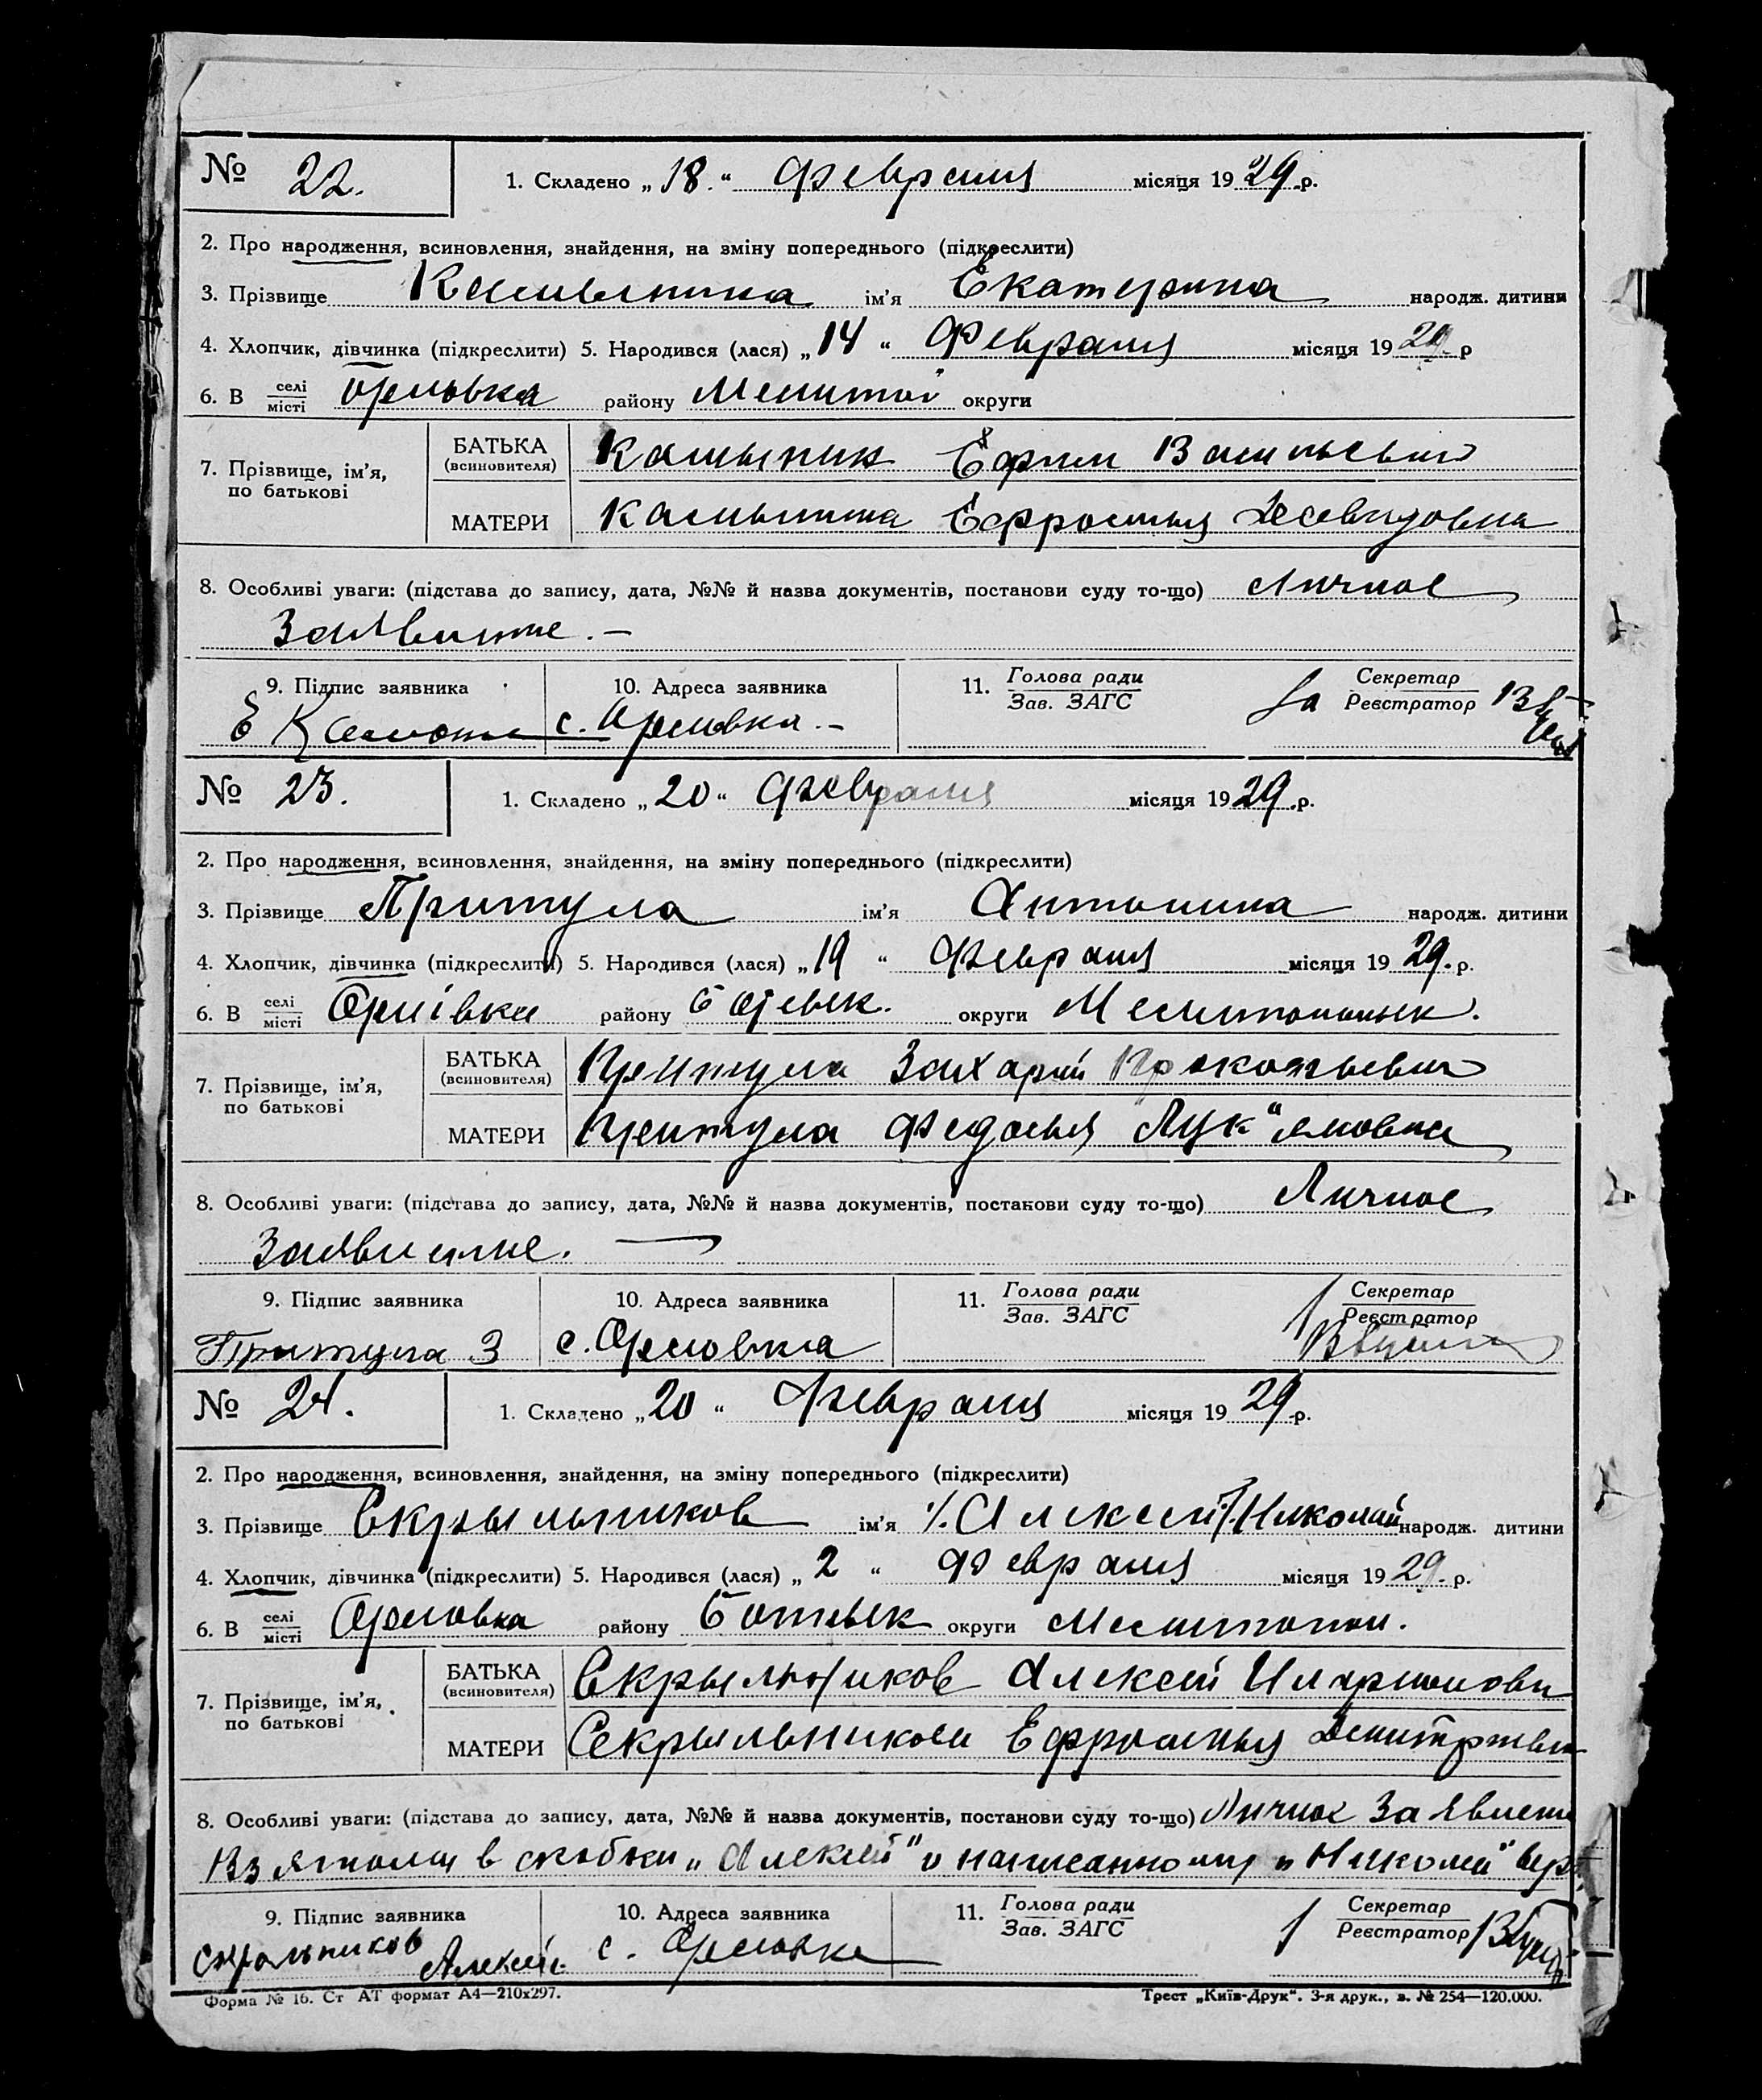 № 22. 1. Складено „18.“ Февраля місяця 1929.р.
2. Про народження, всиновлення, знайдення, на зміну попереднього (підкреслити)
3. Прізвище ім’я Екатерина народж. дитини
4. Хлопчик, дівчинка (підкреслити) 5. Народився (лася) „14“ Февраля місяця 1929. р
6. В селі місті Орловка району Мелитоп округи
7. Прізвище, ім’я, по батькові
БАТЬКА (всиновителя) Ефрим Васильевич
МАТЕРИ Ефросинья Давидовна
8. Особливі уваги: (підстава до запису, дата, №№ й назва документів, постанови суду то-що) Личное
Заявление. –
9. Підпис заявника 10. Адреса заявника 11. Голова ради Зав. ЗАГС Секретар Реєстратор
Е с. Орловка. –
№ 23. 1. Складено „20“ Февраля місяця 1929.р.
2. Про народження, всиновлення, знайдення, на зміну попереднього (підкреслити)
3. Прізвище Притула ім’я Антонина народж. дитини
4. Хлопчик, дівчинка (підкреслити) 5. Народився (лася) „19“ Февраля місяця 1929. р.
6. В селі місті Орлівка району округи Мелитопольск.
7. Прізвище, ім’я, по батькові
БАТЬКА (всиновителя) Притула Захарий Прокофьевич
МАТЕРИ Притула Федосья Лук"яновна
8. Особливі уваги: (підстава до запису, дата, №№ й назва документів, постанови суду то-що) Личное
Заявление. —
9. Підпис заявника 10. Адреса заявника 11. Голова ради Зав. ЗАГС Секретар Реєстратор
Притула З с. Орловка
№ 24. 1. Складено „20“ Февраля місяця 1929 р.
2. Про народження, всиновлення, знайдення, на зміну попереднього (підкреслити)
3. Прізвище Скрыльников ім’я Алексей Николай народж. дитини
4. Хлопчик, дівчинка (підкреслити) 5. Народився (лася) „2“ Февраля місяця 1929. р.
6. В селі місті Орловка району Ботьевск округи Мелитопол.
7. Прізвище, ім’я, по батькові
БАТЬКА (всиновителя) Скрыльников Алексей Илларионови
МАТЕРИ Скрыльникова Ефросинья Дмитриевн
8. Особливі уваги: (підстава до запису, дата, №№ й назва документів, постанови суду то-що) Личное Заявлени
Взятому в скобки „Алексей“ и написанному „Николай“ вер.
9. Підпис заявника 10. Адреса заявника 11. Голова ради Зав. ЗАГС Секретар Реєстратор
Алексей с. Орловка
Форма № 16. Ст АТ формат А4—210х297. Трест „Київ-Друк“. 3-я друк., з. № 254—120.000.